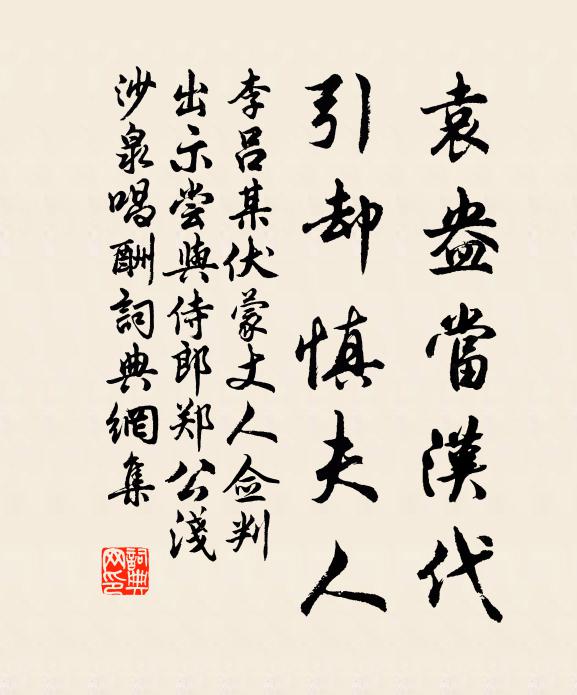 袁盎當漢代
引却慎夫人
李呂某伏蒙丈人佥判
出示尝與侍郎郑公淺
沙泉唱酬詞典網集
詞典
网印